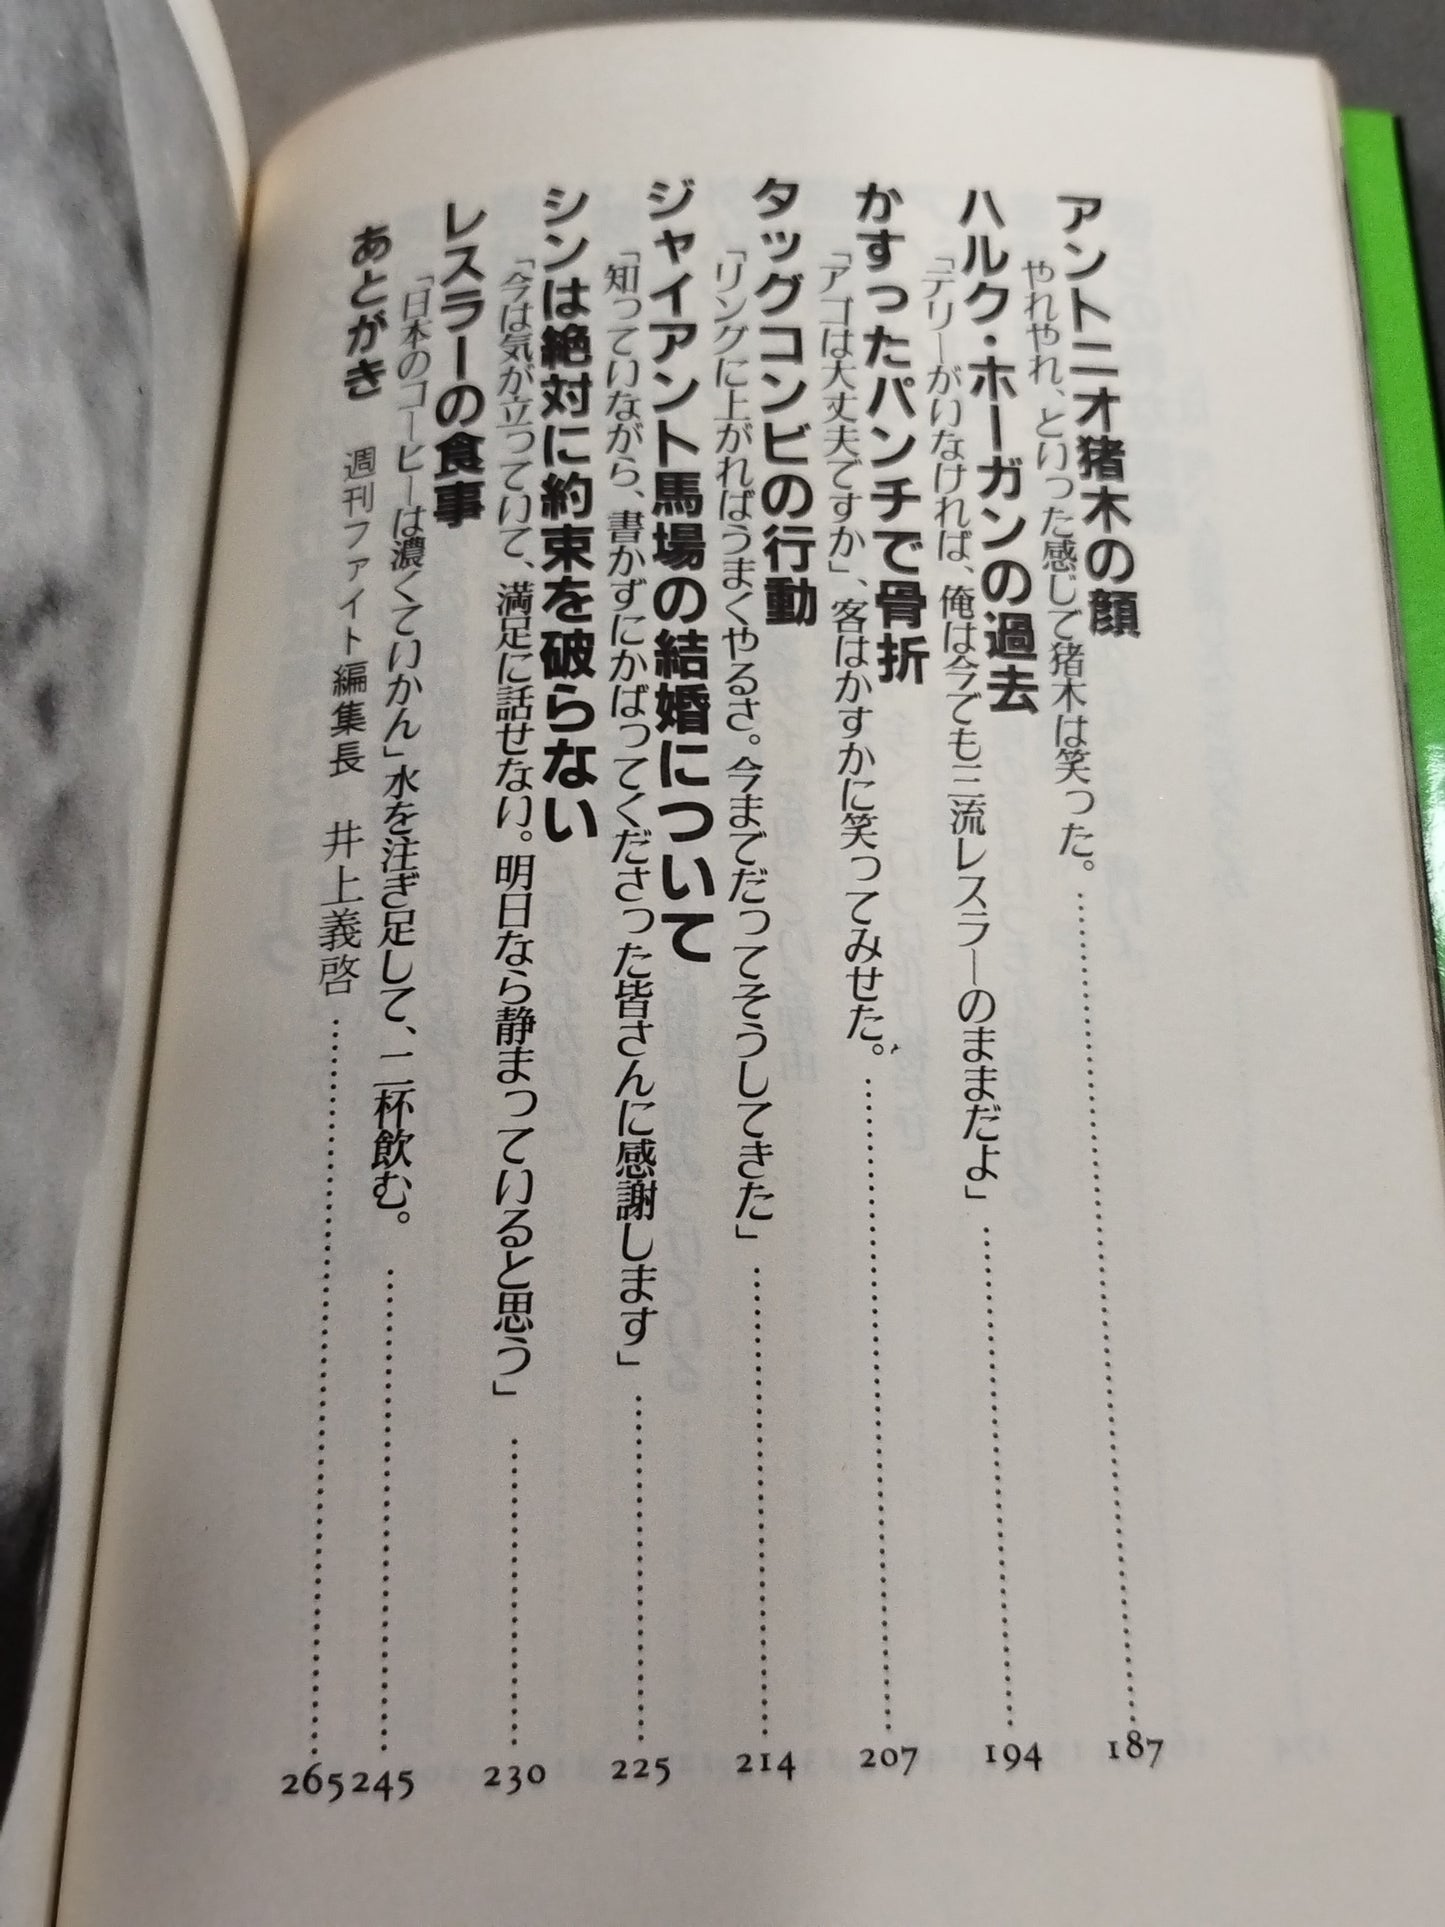 アントニオ猪木の顔
やれやれ、といった感じで猪木は笑った。 187
ハルク・ホーガンの過去
「テリーがいなければ、俺は今でも三流レスラーのままだよ」 194
かすったパンチで骨折
「アゴは大丈夫ですか」、客はかすかに笑ってみせた。 207
タッグコンビの行動
「リングに上がればうまくやるさ。今までだってそうしてきた」 214
ジャイアント馬場の結婚について
「知っていながら、書かずにかばってくださった皆さんに感謝します」 225
シンは絶対に約束を破らない
「今は気が立っていて、満足に話せない。明日なら静まっていると思う」 230
レスラーの食事
「日本のコーヒーは濃くていかん」水を注ぎ足して、二杯飲む。 245
あとがき 週刊ファイト編集長 井上義啓 265